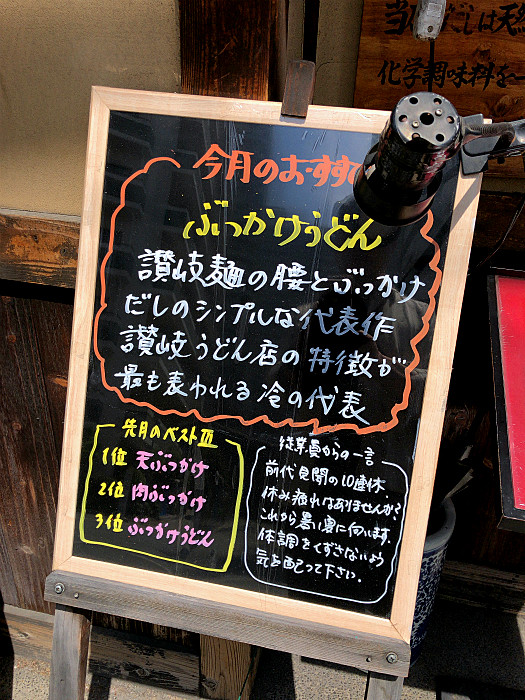 化学調味料を〜
今月のおすす
ぶっかけうどん
讃岐麺の腰とぶっかけ
だしのシンプルな代表作
讃岐うどん店の特徴が
最も表われる冷の代表
先月のベストⅢ
1位 天ぶっかけ
2位 肉ぶっかけ
3位 ぶっかけうどん
従業員からの一言
前代見聞の10連休、
休み疲れはありませんか?
これから暑い夏に向います。
体調をくずさないよう
気を配って下さい。